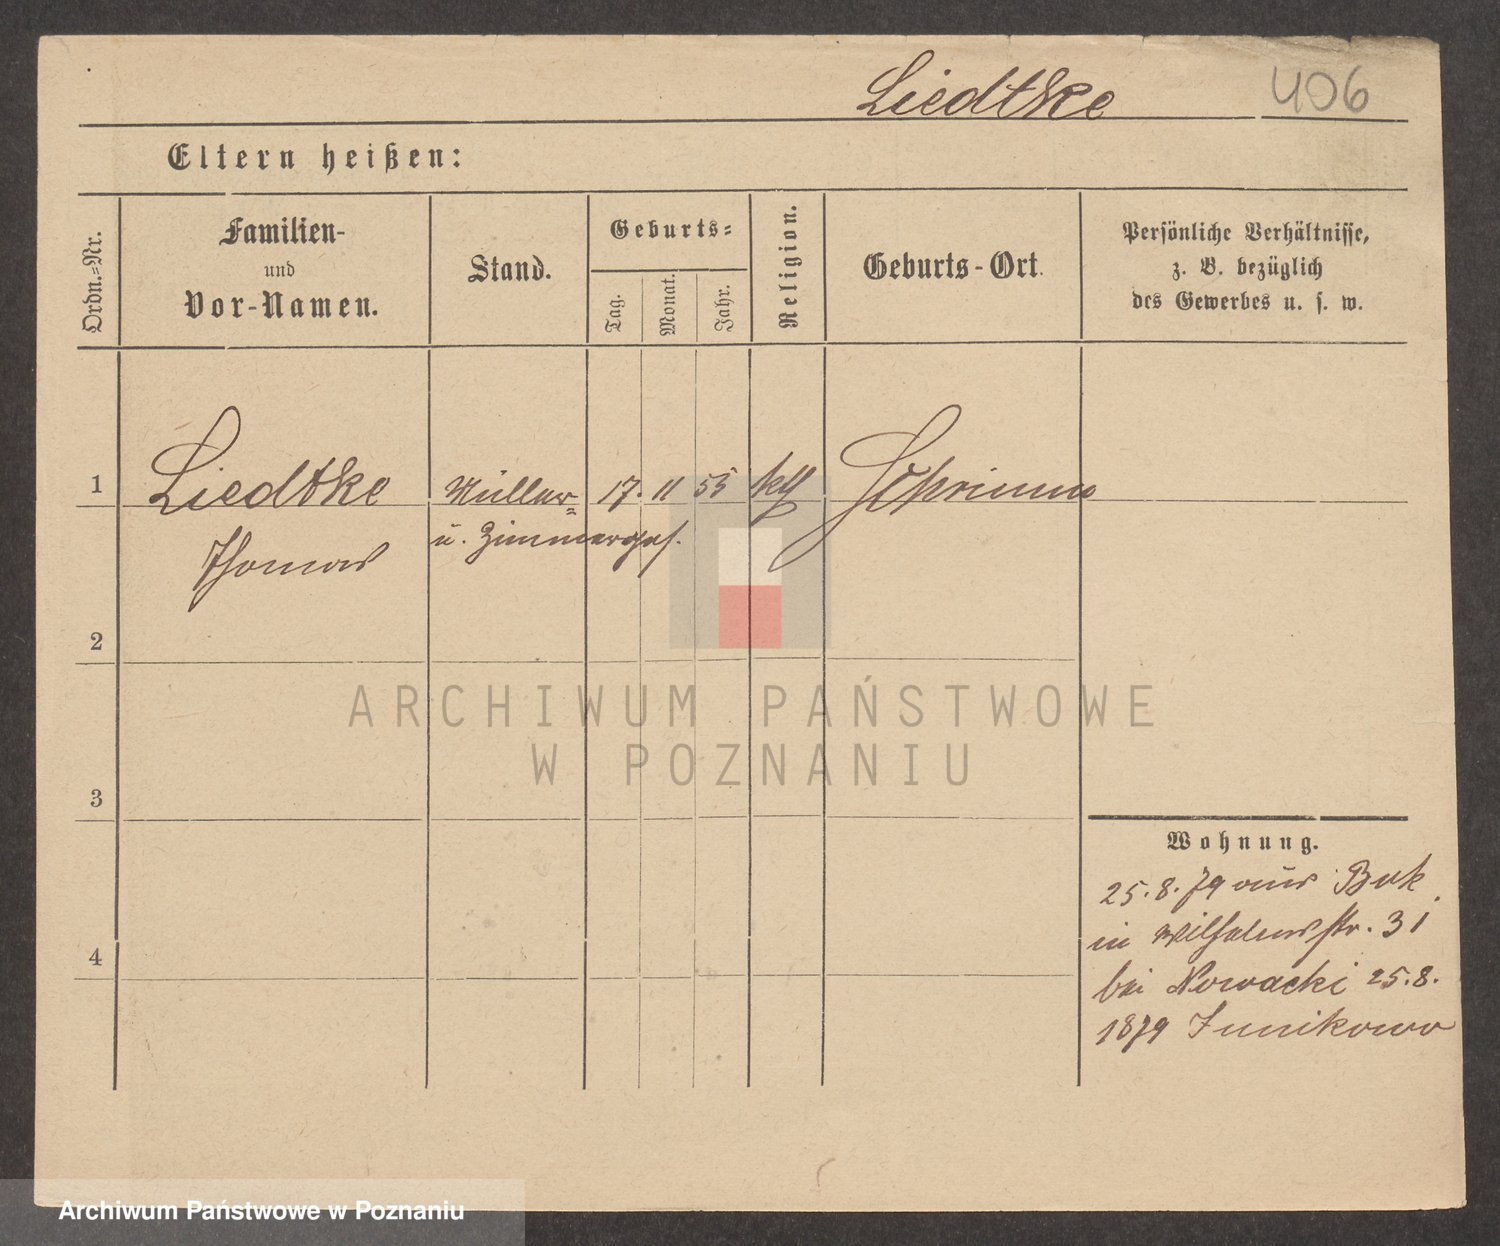 Liedtke 406
Eltern heißen:
Ordn.=Nr.
Familien-
und
Vor-Namen.
Stand.
Geburts=
Tag.
Monat.
Jahr.
Religion.
Geburts-Ort.
Persönliche Verhältnisse,
z. B. bezüglich
des Gewerbes u. s. w.
1 Liedtke Müller= 17. 11 55 kth
Thomas u. Zimmerges.
2
3
4
Wohnung.
25.8.79 aus Buk
in Wilhelmsstr. 31
bei Nowacki 25.8.
1879 Junikowo
ARCHIWUM PAŃSTWOWE
W POZNANIU
Archiwum Państwowe w Poznaniu